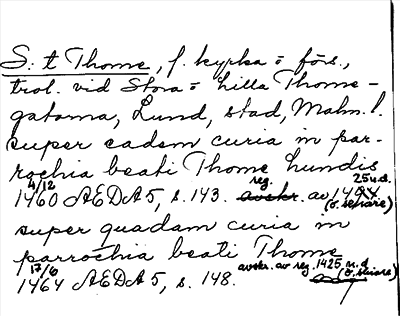 S:t Thome, f. kyrka o förs.,
trol. vid Stora o Lilla Thome-
gatorna, Lund, stad, Malm. l.
super eadem curia in par-
rochia beati Thome Lundis
4/12 1460 ÆDA 5, s. 143. avskr. reg. av 1494 25 u.d. (o. senare)
super quadam curia in
parrochia beati Thome
17/6 1464 ÆDA 5, s. 148. avskr. av reg. 1425 u.d. (o. senare)